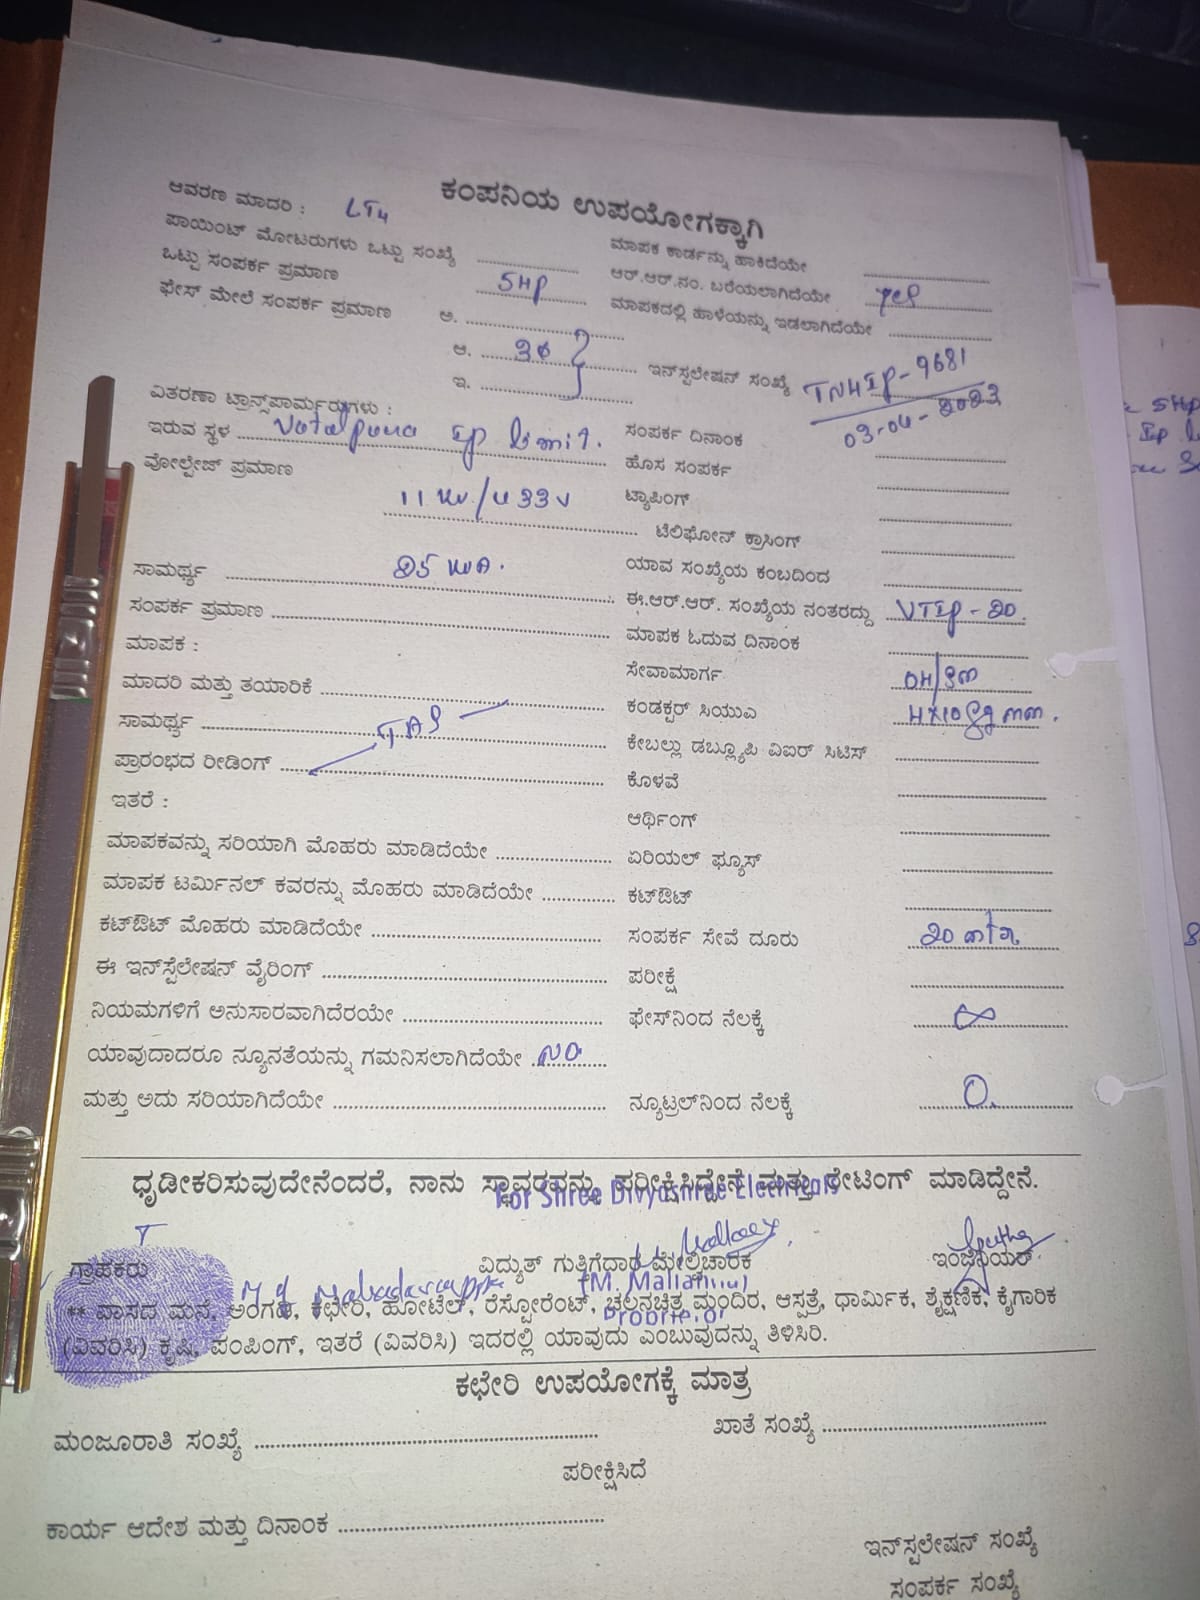 ಕಂಪನಿಯ ಉಪಯೋಗಕ್ಕಾಗಿ
ಆವರಣ ಮಾದರಿ : LT4
ಪಾಯಿಂಟ್ ಮೋಟರುಗಳು ಒಟ್ಟು ಸಂಖ್ಯೆ
ಒಟ್ಟು ಸಂಪರ್ಕ ಪ್ರಮಾಣ 5HP
ಫೇಸ್ ಮೇಲೆ ಸಂಪರ್ಕ ಪ್ರಮಾಣ ಅ.
ಆ.
ಇ.
ವಿತರಣಾ ಟ್ರಾನ್ಸ್‌ಪಾರ್ಮರುಗಳು :
ಇರುವ ಸ್ಥಳ IP limit.
ವೋಲ್ಟೇಜ್ ಪ್ರಮಾಣ
11 kv/433v
ಸಾಮರ್ಥ್ಯ 25 kVA.
ಸಂಪರ್ಕ ಪ್ರಮಾಣ
ಮಾಪಕ :
ಮಾದರಿ ಮತ್ತು ತಯಾರಿಕೆ
ಸಾಮರ್ಥ್ಯ
ಪ್ರಾರಂಭದ ರೀಡಿಂಗ್
ಇತರೆ :
ಮಾಪಕವನ್ನು ಸರಿಯಾಗಿ ಮೊಹರು ಮಾಡಿದೆಯೇ
ಮಾಪಕ ಟರ್ಮಿನಲ್ ಕವರನ್ನು ಮೊಹರು ಮಾಡಿದೆಯೇ
ಕಟ್‌ಔಟ್ ಮೊಹರು ಮಾಡಿದೆಯೇ
ಈ ಇನ್‌ಸ್ಟೆಲೇಷನ್ ವೈರಿಂಗ್
ನಿಯಮಗಳಿಗೆ ಅನುಸಾರವಾಗಿದೆರಯೇ
ಯಾವುದಾದರೂ ನ್ಯೂನತೆಯನ್ನು ಗಮನಿಸಲಾಗಿದೆಯೇ NO
ಮತ್ತು ಅದು ಸರಿಯಾಗಿದೆಯೇ
ಮಾಪಕ ಕಾರ್ಡನ್ನು ಹಾಕಿದೆಯೇ
ಆರ್.ಆರ್.ನಂ. ಬರೆಯಲಾಗಿದೆಯೇ yes
ಮಾಪಕದಲ್ಲಿ ಹಾಳೆಯನ್ನು ಇಡಲಾಗಿದೆಯೇ
ಇನ್‌ಸ್ಟಲೇಷನ್ ಸಂಖ್ಯೆ TNHIP-9681
03-04-2023
ಸಂಪರ್ಕ ದಿನಾಂಕ
ಹೊಸ ಸಂಪರ್ಕ
ಟ್ಯಾಪಿಂಗ್
ಟೆಲಿಫೋನ್ ಕ್ರಾಸಿಂಗ್
ಯಾವ ಸಂಖ್ಯೆಯ ಕಂಬದಿಂದ
ಈ.ಆರ್.ಆರ್. ಸಂಖ್ಯೆಯ ನಂತರದ್ದು VTIP-20.
ಮಾಪಕ ಓದುವ ದಿನಾಂಕ
ಸೇವಾಮಾರ್ಗ
ಕಂಡಕ್ಟರ್ ಸಿಯುಎ 4X10 sq mm.
ಕೇಬಲ್ಲು ಡಬ್ಲ್ಯೂಪಿ ವಿಐರ್ ಸಿಟಿಸ್
ಕೊಳವೆ
ಆರ್ಥಿಂಗ್
ಏರಿಯಲ್ ಫ್ಯೂಸ್
ಕಟ್‌ಔಟ್
ಸಂಪರ್ಕ ಸೇವೆ ದೂರು 20 mtr
ಪರೀಕ್ಷೆ
ಫೇಸ್‌ನಿಂದ ನೆಲಕ್ಕೆ ∞
ನ್ಯೂಟ್ರಲ್‌ನಿಂದ ನೆಲಕ್ಕೆ 0.
ಧೃಡೀಕರಿಸುವುದೇನೆಂದರೆ, ನಾನು ಸ್ಥಾವರವನ್ನು ಪರೀಕ್ಷಿಸಿದ್ದೇನೆ ಮತ್ತು ರೇಟಿಂಗ್ ಮಾಡಿದ್ದೇನೆ.
For Shree Divyashree Electricals
ಗ್ರಾಹಕರು ವಿದ್ಯುತ್ ಗುತ್ತಿಗೆದಾರ ಮೇಲ್ವಿಚಾರಕ ಇಂಜಿನಿಯರ್
** ವಾಸದ ಮನೆ, ಅಂಗಡಿ, ಕಛೇರಿ, ಹೋಟೆಲ್, ರೆಸ್ಟೋರೆಂಟ್, ಚಲನಚಿತ್ರ ಮಂದಿರ, ಆಸ್ಪತ್ರೆ, ಧಾರ್ಮಿಕ, ಶೈಕ್ಷಣಿಕ, ಕೈಗಾರಿಕ
(ವಿವರಿಸಿ) ಕೃಷಿ, ಪಂಪಿಂಗ್, ಇತರೆ (ವಿವರಿಸಿ) ಇದರಲ್ಲಿ ಯಾವುದು ಎಂಬುವುದನ್ನು ತಿಳಿಸಿರಿ.
ಕಛೇರಿ ಉಪಯೋಗಕ್ಕೆ ಮಾತ್ರ
ಮಂಜೂರಾತಿ ಸಂಖ್ಯೆ ಖಾತೆ ಸಂಖ್ಯೆ
ಪರೀಕ್ಷಿಸಿದೆ
ಕಾರ್ಯ ಆದೇಶ ಮತ್ತು ದಿನಾಂಕ
ಇನ್‌ಸ್ಪಲೇಷನ್ ಸಂಖ್ಯೆ
ಸಂಪರ್ಕ ಸಂಖ್ಯೆ